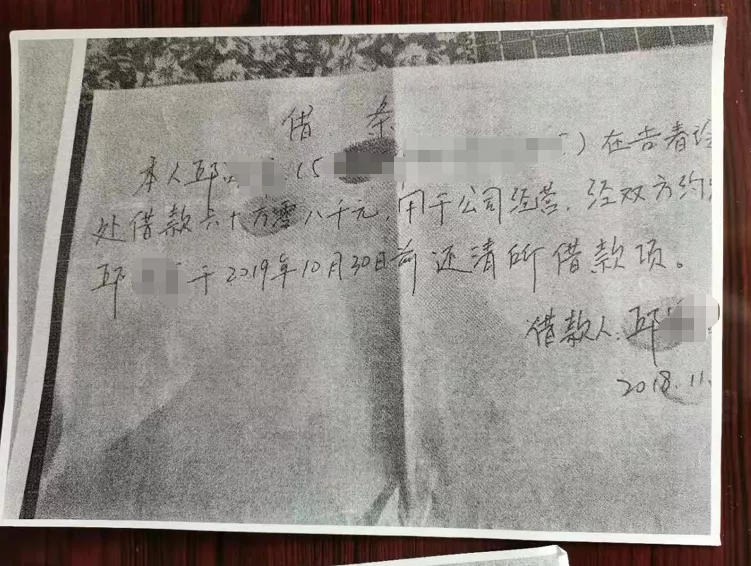 借 条
本人邱 (5 ) 在告春
处借款六十万零八千元,用于公司经营,经双方约
邱 于2019年10月30日前还清所借款项。
借款人:邱
2018.11.